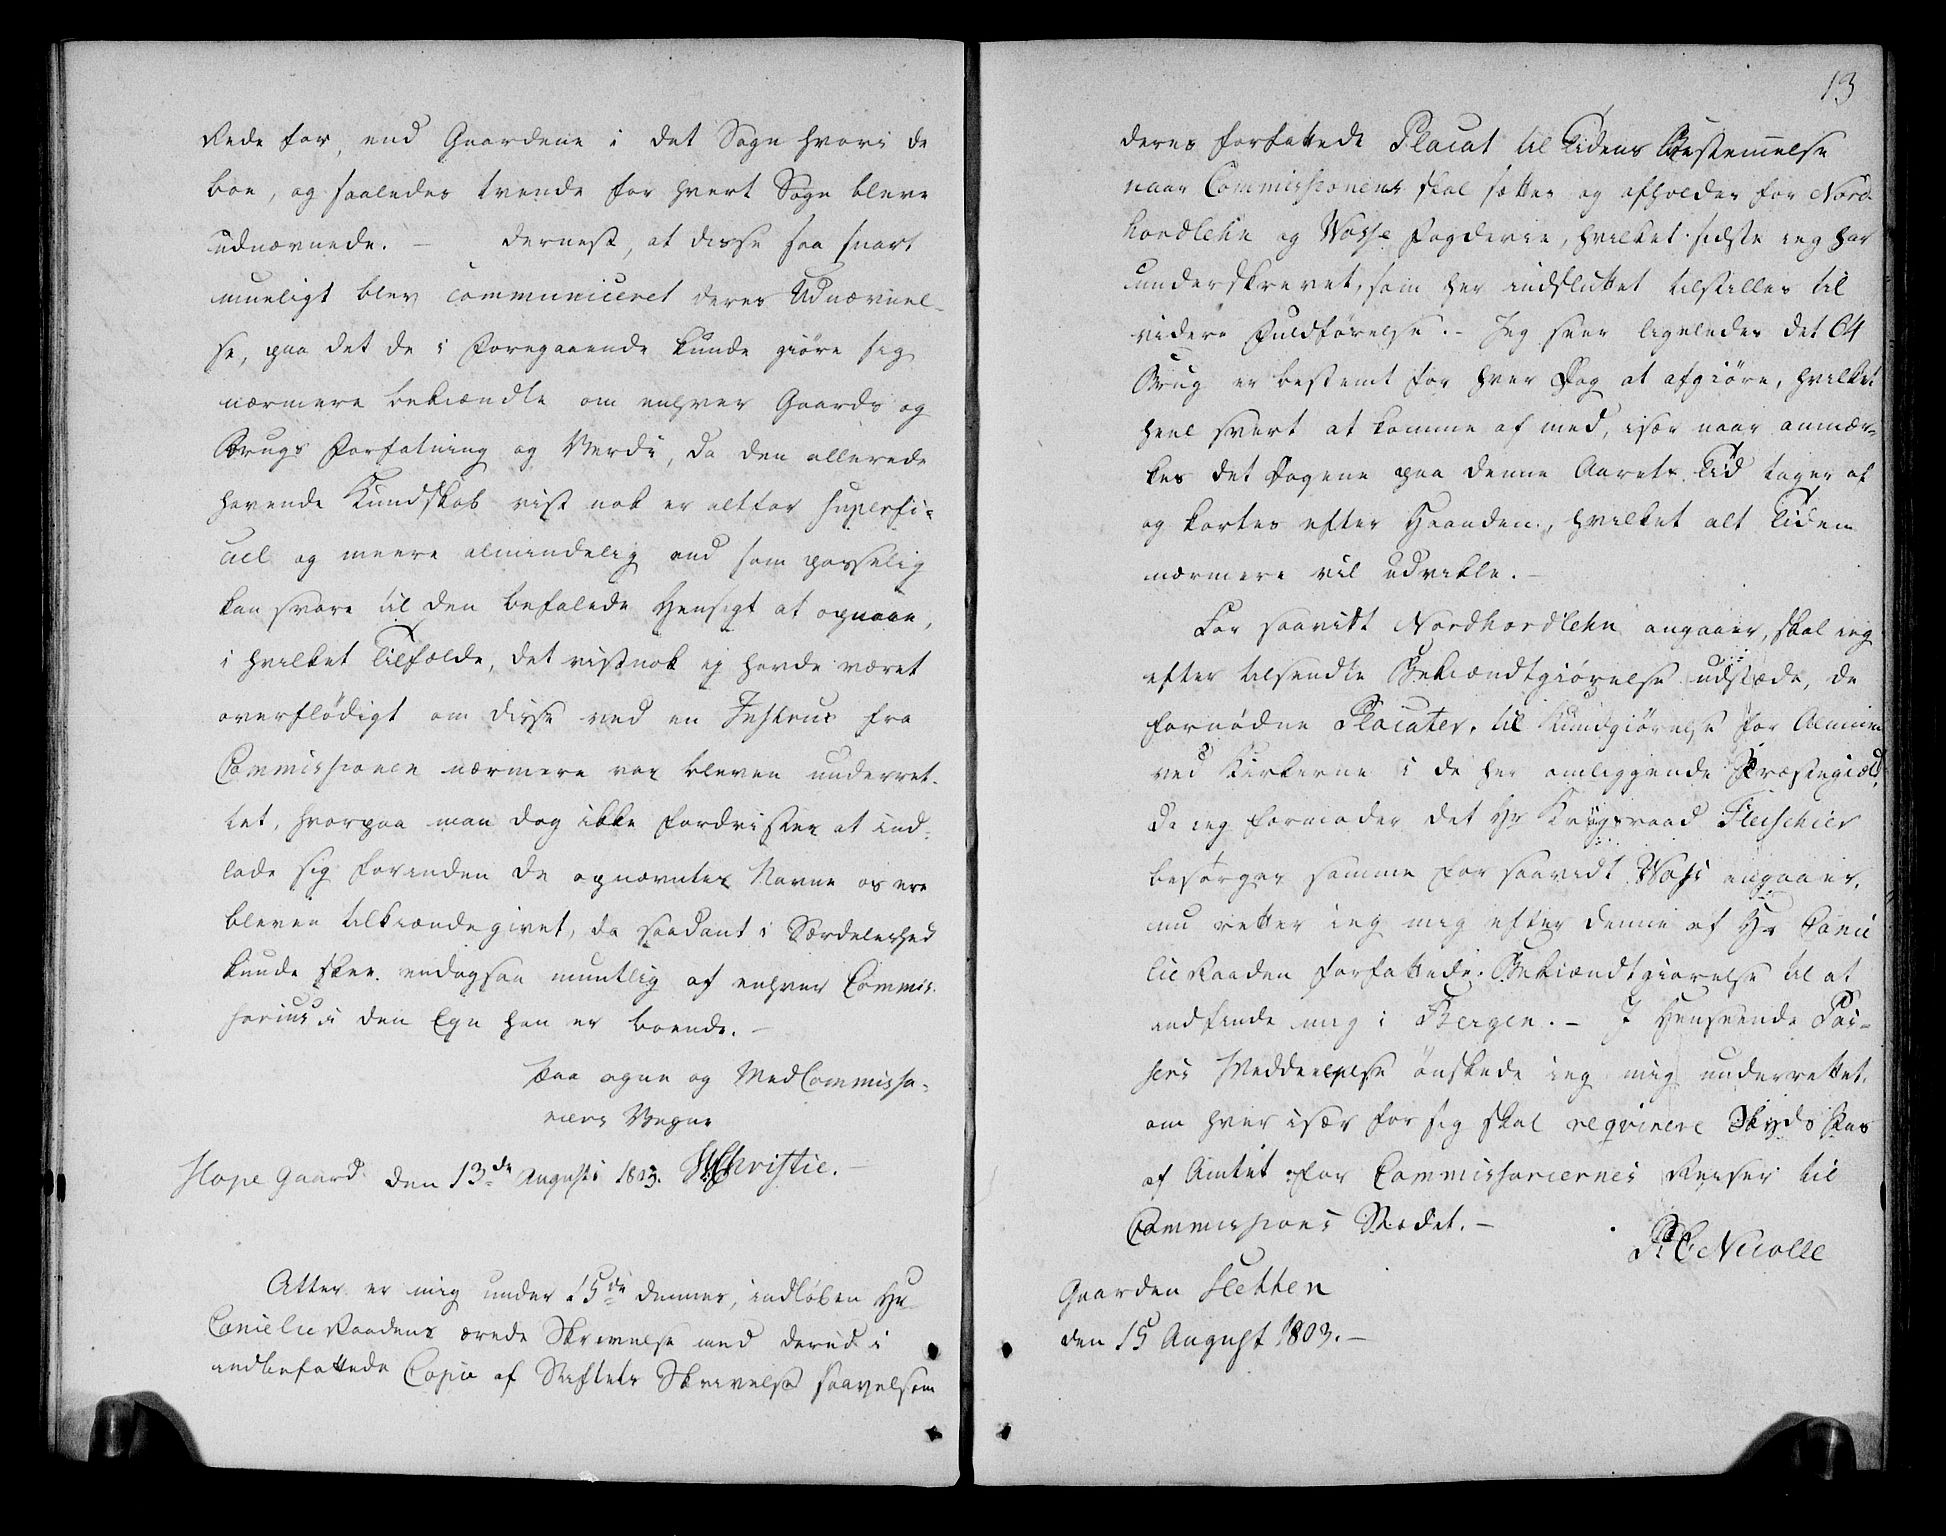 Rede for, end Gaardene i det Sogn hvori de
boe, og saaledes tvende for hvert Sogn bleve
udnævnede. – dernest, at disse saa snart
mueligt blev communiceret deres Udnævnel-
se, paa det de i Foregaaende kunde giøre sig
nærmere bekiændte om enhver Gaards og
Brugs Forfatning og Verdi, da den allerede
havende Kundskab vist nok er altfor superfi-
ciel og meere almindelig end som passelig
kan svare til den befalede Hensigt at opnaae,
i hvilket Tilfælde, det vistnok ej havde været
overflödigt om disse ved en Instrux fra
Commissionen nærmere var bleven underret-
tet, hvorpaa man dog ikke fordrister at ind-
lade sig forinden de opnævntes Navne os ere
bleven tilkiændegivet, da saadant i Særdeleshed
kunde skee endogsaa mundtlig af enhver Commis-
sarius i den Egn han er boende. –
Paa egne og MedCommissa-
riers Vegne
Hope Gaard den 13de Augusti 1803. WChristie. –
Atter er mig under 15de dennes, indløben Hr
Cancelie Raadens ærede Skrivelse med derudi
indbefattede Copie af Stiftets Skrivelse saavelsom
13
deres forfattede Placat til Tidens Bestemmelse
naar Commissionens skal sættes og afholdes for Nord-
hordlehn og Wosse Fogderie, hvilket sidste ieg har
underskrevet, som her indsluttet tilstilles til
videre Fuldförelse. – Jeg seer ligeledes det 64
Brug er bestemt for hver Dag at afgiöre, hvilket
heel svert at komme af med, især naar anmær-
kes det Dagene paa denne Aarets Tid tager af
og kortes efter Haanden, hvilket alt Tiden
nærmere vil udvikle. –
For saavitt Nordhordlehn angaaer, skal ieg
efter tilsendte Bekiændtgiörelse udstæde, de
fornödne Placater, til Kundgiörelse for Almuen
ved Kirkerne i de her omliggende Præstegield,
da ieg formoder det Hr Krigsraad Fleischer
besørger samme for saavidt Woss angaaer,
nu retter ieg mig efter denne af Hr Cance
lie Raaden forfattede Bekiændtgiørelse til at
indfinde mig i Bergen. – I Henseende
Meddeelelse önskede ieg mig underrettet,
om hver især for sig skal reqvirere Skyds
af Amtet for Commissariernes Reiser til
Commissions Stædet. –
Nicolle
Gaarden Sletten
den 15 August 1803. –